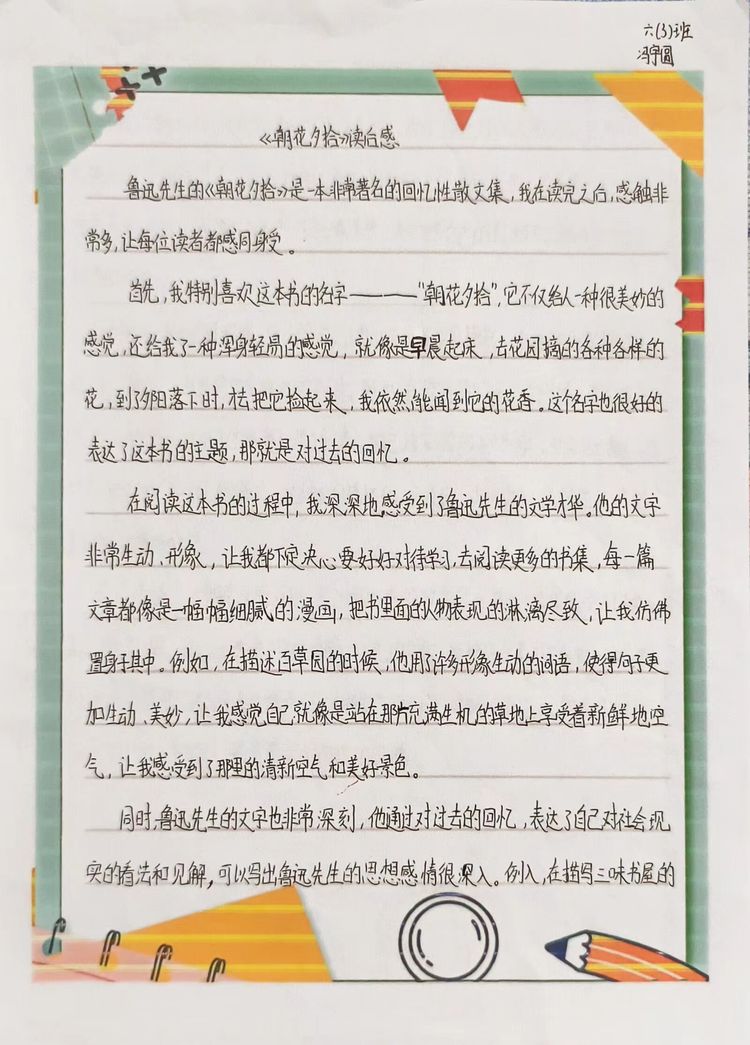 六(3)班
冯宇圆
《朝花夕拾》读后感
鲁迅先生的《朝花夕拾》是一本非常著名的回忆性散文集，我在读完之后，感触非
常多，让每位读者都感同身受。
首先，我特别喜欢这本书的名字————“朝花夕拾”，它不仅给人一种很美妙的
感觉，还给我了一种浑身轻易的感觉，就像是早晨起床，去花园摘的各种各样的
花，到了夕阳落下时，才去把它捡起来，我依然能闻到它的花香。这个名字也很好的
表达了这本书的主题，那就是对过去的回忆。
在阅读这本书的过程中，我深深地感受到了鲁迅先生的文学才华。他的文字
非常生动、形象，让我都下定决心要好好对待学习，去阅读更多的书集，每一篇
文章都像是一幅幅细腻的漫画，把书里面的人物表现的淋漓尽致，让我仿佛
置身于其中。例如，在描述百草园的时候，他用了许多形象生动的词语，使得句子更
加生动、美妙，让我感觉自己就像是站在那片充满生机的草地上享受着新鲜地空
气，让我感受到了那里的清新空气和美好景色。
同时，鲁迅先生的文字也非常深刻，他通过对过去的回忆，表达了自己对社会现
实的看法和见解，可以写出鲁迅先生的思想感情很深入。例入，在描写三味书屋的